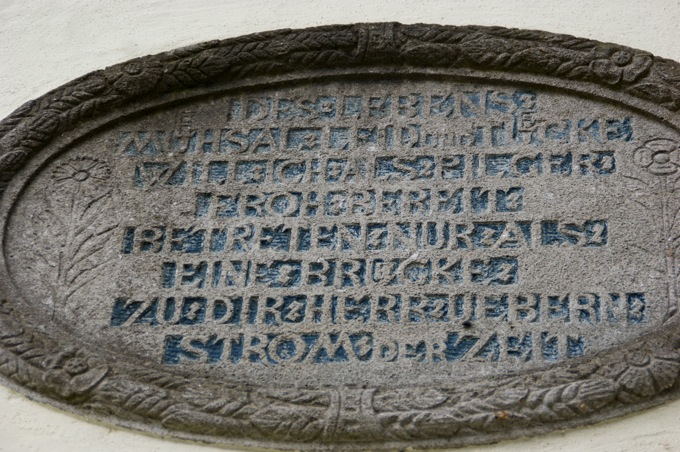 DES LEBENS
MÜHSAL LEID UND TÜCKE
WILL ICH ALS PILGER
FROH BEREIT
BETRETEN NUR ALS
EINE BRÜCKE
ZU DIR HERR UEBERN
STROM DER ZEIT